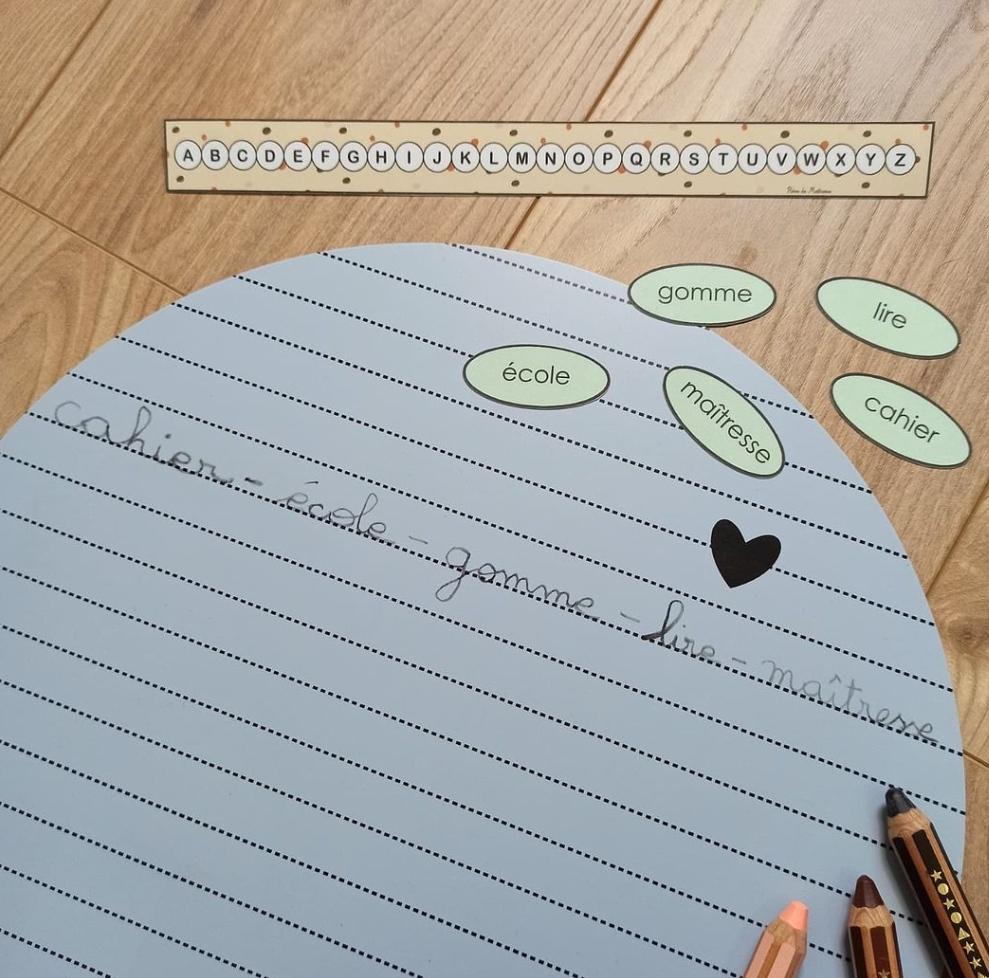 A B C D E F G H I J K L M N O P Q R S T U V W X Y Z
gomme
lire
école
maîtresse
cahier
cahier - école - gomme - lire - maîtresse